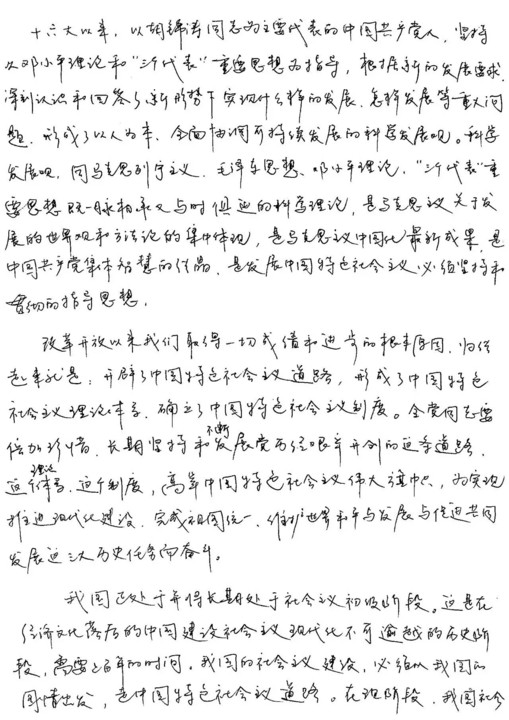 十六大以来，以胡锦涛同志为主要代表的中国共产党人，坚持
以邓小平理论和“三个代表”重要思想为指导，根据新的发展要求，
深刻认识和回答了新形势下实现什么样的发展、怎样发展等重大问
题，形成了以人为本、全面协调可持续发展的科学发展观。科学
发展观，同马克思列宁主义、毛泽东思想、邓小平理论、“三个代表”重
要思想既一脉相承又与时俱进的科学理论，是马克思主义关于发
展的世界观和方法论的集中体现，是马克思主义中国化最新成果，是
中国共产党集体智慧的结晶，是发展中国特色社会主义必须坚持和
贯彻的指导思想。
改革开放以来我们取得一切成绩和进步的根本原因，归结
起来就是：开辟了中国特色社会主义道路，形成了中国特色
社会主义理论体系，确立了中国特色社会主义制度。全党同志要
倍加珍惜、长期坚持和不断发展党历经艰辛开创的这条道路、
这个理论体系、这个制度，高举中国特色社会主义伟大旗帜，为实现
推进现代化建设、完成祖国统一、维护世界和平与发展与促进共同
发展这三大历史任务而奋斗。
我国正处于并将长期处于社会主义初级阶段。这是在
经济文化落后的中国建设社会主义现代化不可逾越的历史阶
段，需要上百年的时间。我国的社会主义建设，必须从我国的
国情出发，走中国特色社会主义道路。在现阶段，我国社会